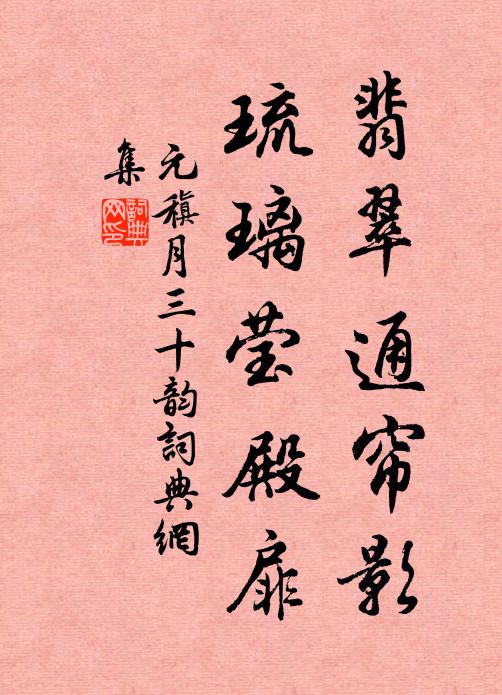 翡翠通帘影
琉璃莹殿扉
元稹月三十韵詞典網
集
詞典
网印